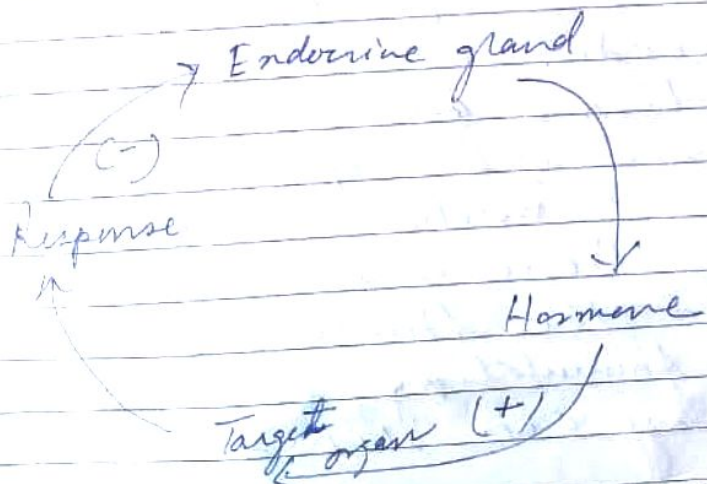 Endocrine gland
(-)
Response
Hormone
Target
organ (+)